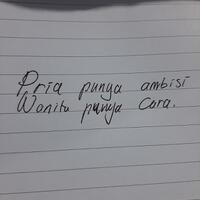 Pria punya ambisi
Wanita punya Cara.